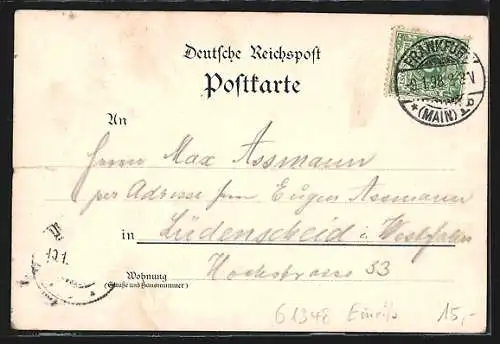 Deutsche Reichspost
Postkarte
FRANKFURT
(MAIN)
An
Herrn Max Assmann
per Adresse Eugen Assmann
in Lüdenscheid i. Westfalen
Wohnung
(Straße und Hausnummer)
Hochstrasse 53
10.1.
61348 Einriß 15,-